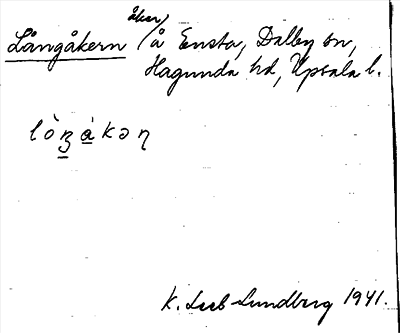 Långåkern (åker) å Ensta, Dalby sn,
Hagunda hd, Upsala l.
lòŋákəɳ
K. Leeb-Lundberg 1941.